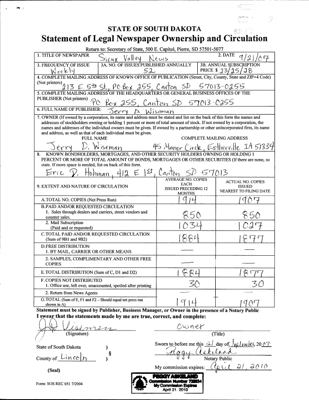 STATE OF SOUTH DAKOTA
Statement of Legal Newspaper Ownership and Circulation
Return to: Secretary of State, 500 E. Capitol, Pierre, SD 57501-5077
1. TITLE OF NEWSPAPER Sioux Valley News 2. DATE 9/21/07
3. FREQUENCY OF ISSUE Weekly 3A. NO. OF ISSUES PUBLISHED ANNUALLY 52 3B. ANNUAL SUBSCRIPTION PRICE $ 23/25/28
4. COMPLETE MAILING ADDRESS OF KNOWN OFFICE OF PUBLICATION (Street, City, County, State and ZIP+4 Code)
(Not printers) 213 E 5th St, PO Box 255, Canton SD 57013-0255
5. COMPLETE MAILING ADDRESS OF THE HEADQUARTERS OR GENERAL BUSINESS OFFICES OF THE
PUBLISHER (Not printers) PO Box 255, Canton SD 57013-0255
6. FULL NAME OF PUBLISHER: Jerry D. Wiseman
7. OWNER (If owned by a corporation, its name and address must be stated and list on the back of this form the names and
addresses of stockholders owning or holding 1 percent or more of total amount of stock. If not owned by a corporation, the
names and addresses of the individual owners must be given. If owned by a partnership or other unincorporated firm, its name
and address, as well as that of each individual must be given.
FULL NAME COMPLETE MAILING ADDRESS
Jerry D. Wiseman 45 Manor Circle, Estherville IA 51334
8. KNOWN BONDHOLDERS, MORTGAGES, AND OTHER SECURITY HOLDERS OWNING OR HOLDING 1
PERCENT OR MORE OF TOTAL AMOUNT OF BONDS, MORTGAGES OR OTHER SECURITIES (If there are none, so
state. If more space is needed, list on back of this form.
Eric D. Hohman, 412 E 1st, Canton SD 57013
9. EXTENT AND NATURE OF CIRCULATION
AVERAGE NO. COPIES EACH ISSUED PRECEDING 12 MONTHS
ACTUAL NO. COPIES ISSUED NEAREST TO FILING DATE
A. TOTAL NO. COPIES (Net Press Run) 1914 1907
B. PAID AND/OR REQUESTED CIRCULATION
1. Sales through dealers and carriers, street vendors and
counter sales. 850 850
2. Mail Subscription
(Paid and or requested) 1034 1027
C. TOTAL PAID AND/OR REQUESTED CIRCULATION
(Sum of 9B1 and 9B2) 1884 1877
D. FREE DISTRIBUTION
1. BY MAIL, CARRIER OR OTHER MEANS
2. SAMPLES, COMPLIMENTARY AND OTHER FREE
COPIES
E. TOTAL DISTRIBUTION (Sum of C, D1 and D2) 1884 1877
F. COPIES NOT DISTRIBUTED
1. Office use, left over, unaccounted, spoiled after printing 30 30
2. Return from News Agents
G. TOTAL (Sum of E, F1 and F2 - Should equal net press run
shown in A) 1914 1907
Statement must be signed by Publisher, Business Manager, or Owner in the presence of a Notary Public
I swear that the statements made by me are true, correct, and complete:
Owner
(Signature) (Title)
State of South Dakota )
§
County of Lincoln )
Sworn to before me this 21 day of September, 2007
Peggy Aekeland
Notary Public
(Seal)
My commission expires: April 21, 2010
Form: SOS REC 051 7/2004
PEGGY AEKELAND
April 21, 2010